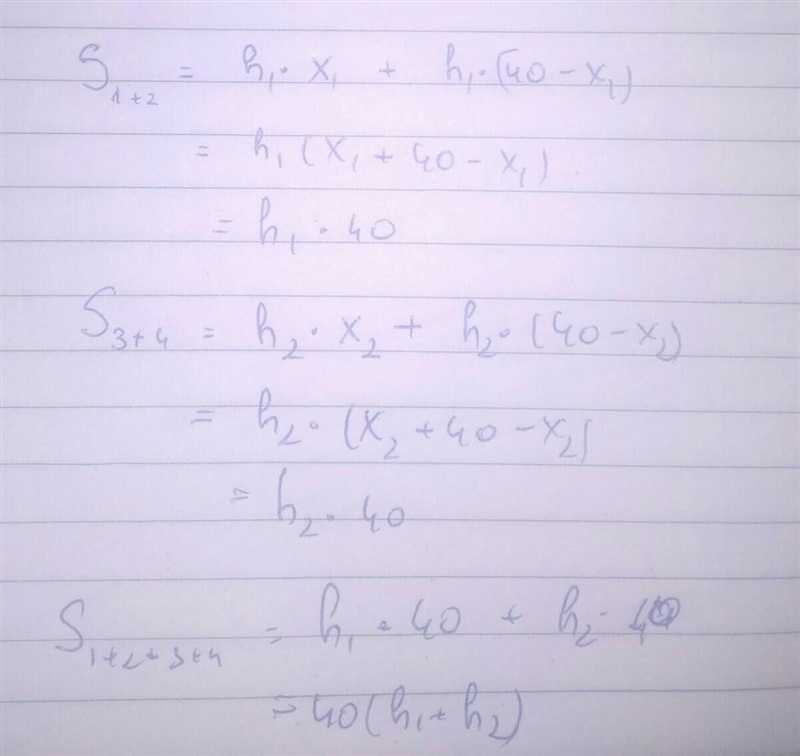 S₁₊₂ = h₁· x₁ + h₁·(40 - x₁)
= h₁ (x₁ + 40 - x₁)
= h₁ · 40
S₃₊₄ = h₂· x₂ + h₂· (40 - x₂)
= h₂· (x₂ + 40 - x₂)
= h₂· 40
S₁₊₂₊₃₊₄ = h₁ · 40 + h₂· 40
= 40 (h₁ + h₂)